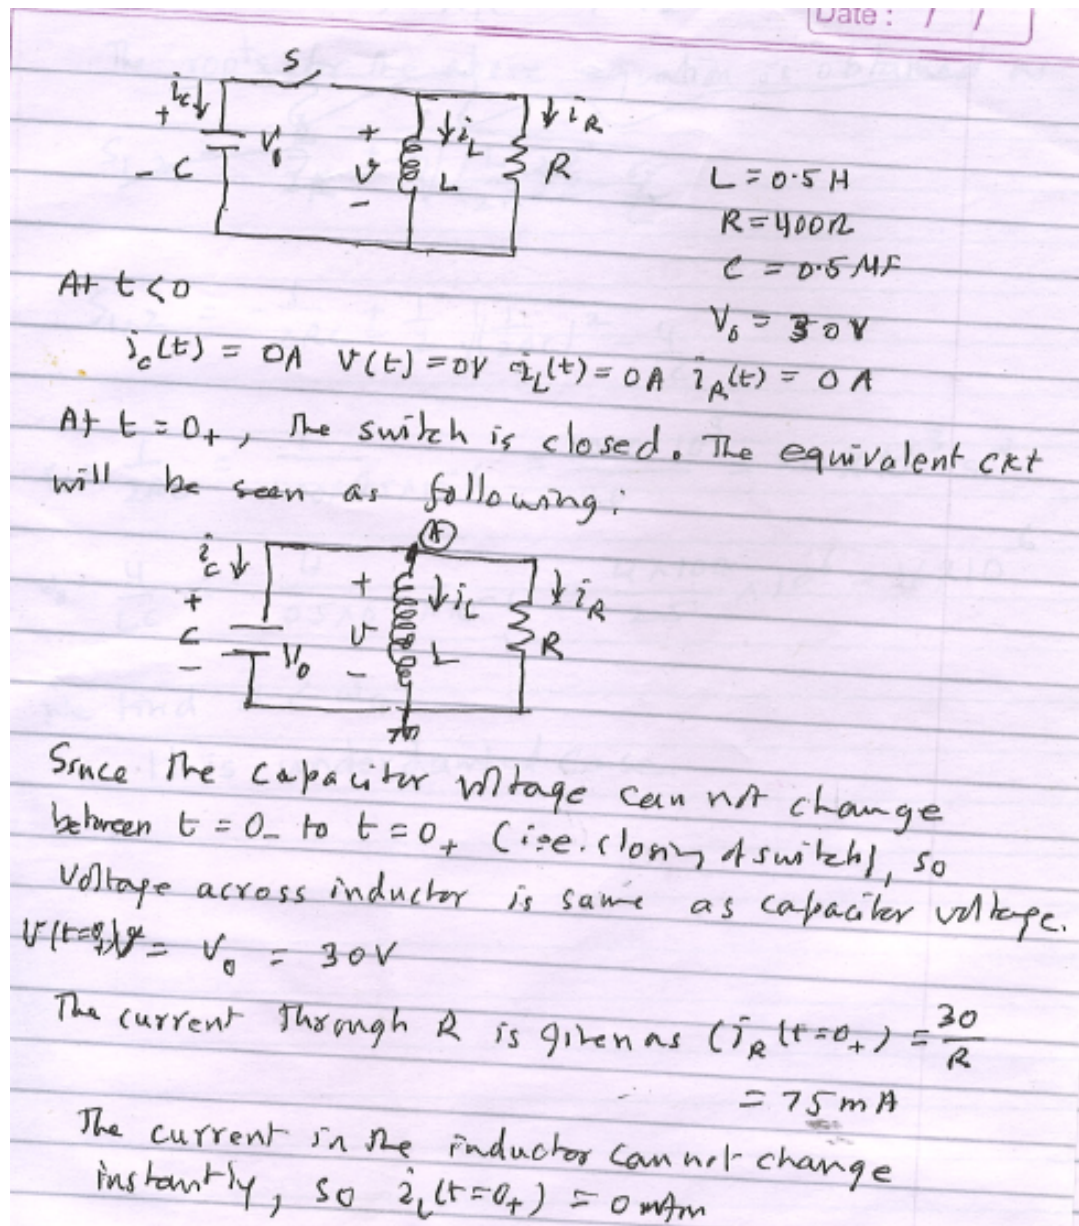 Date : / /
S
ic
+
- C
V₀
+
v
-
iL
L
iR
R
L = 0.5H
R = 400Ω
C = 0.5 MF
V₀ = 30V
At t<0
ic(t) = 0A V(t) = 0V iL(t) = 0A iR(t) = 0 A
At t = 0+, The switch is closed. The equivalent ckt
will be seen as following:
A
ic
+
C
-
V₀
+
v
-
iL
L
iR
R
Since the capacitor voltage can not change
between t = 0- to t = 0+ (i.e. closing of switch), so
voltage across inductor is same as capacitor voltage.
V(t=0+) = V₀ = 30V
The current through R is given as (iR (t=0+) = 30/R
= 75mA
The current in the inductor can not change
instantly, so iL(t=0+) = 0